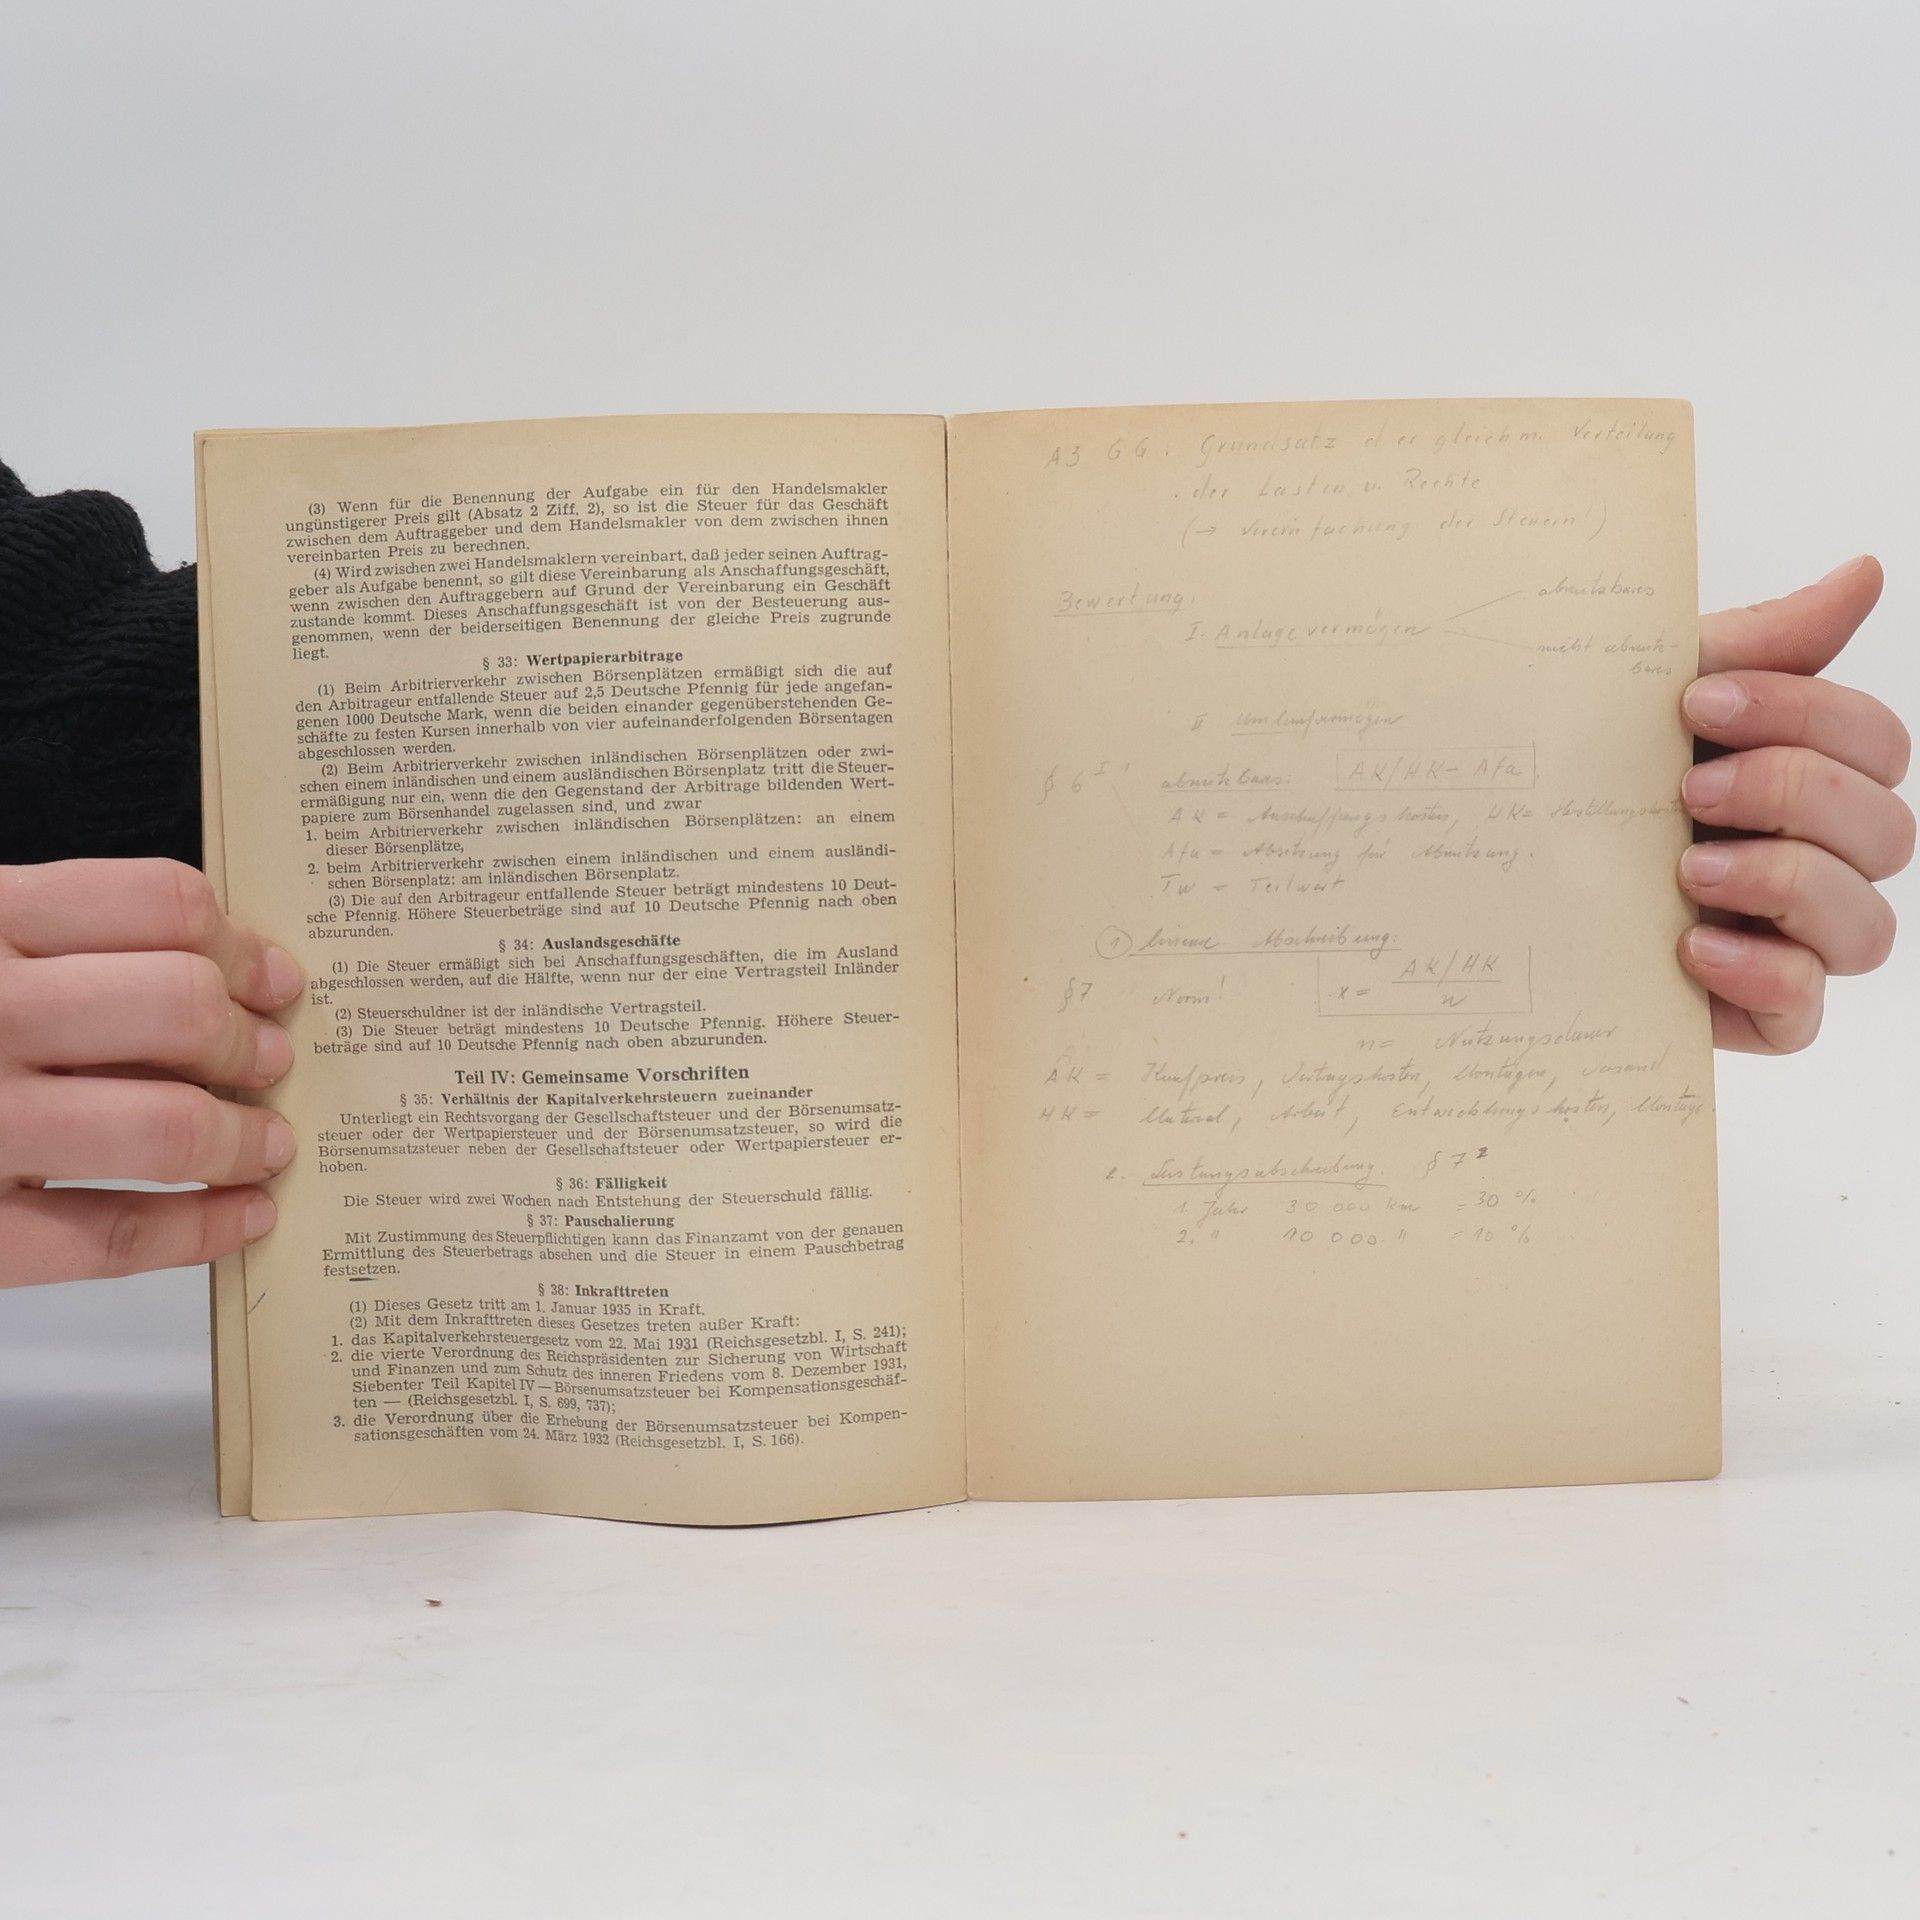 (3) Wenn für die Benennung der Aufgabe ein für den Handelsmakler
ungünstigerer Preis gilt (Absatz 2 Ziff. 2), so ist die Steuer für das Geschäft
zwischen dem Auftraggeber und dem Handelsmakler von dem zwischen ihnen
vereinbarten Preis zu berechnen.
(4) Wird zwischen zwei Handelsmaklern vereinbart, daß jeder seinen Auftrag-
geber als Aufgabe benennt, so gilt diese Vereinbarung als Anschaffungsgeschäft,
wenn zwischen den Auftraggebern auf Grund der Vereinbarung ein Geschäft
zustande kommt. Dieses Anschaffungsgeschäft ist von der Besteuerung aus-
genommen, wenn der beiderseitigen Benennung der gleiche Preis zugrunde
liegt.
§ 33: Wertpapierarbitrage
(1) Beim Arbitrierverkehr zwischen Börsenplätzen ermäßigt sich die auf
den Arbitrageur entfallende Steuer auf 2,5 Deutsche Pfennig für jede angefan-
genen 1000 Deutsche Mark, wenn die beiden einander gegenüberstehenden Ge-
schäfte zu festen Kursen innerhalb von vier aufeinanderfolgenden Börsentagen
abgeschlossen werden.
(2) Beim Arbitrierverkehr zwischen inländischen Börsenplätzen oder zwi-
schen einem inländischen und einem ausländischen Börsenplatz tritt die Steuer-
ermäßigung nur ein, wenn die den Gegenstand der Arbitrage bildenden Wert-
papiere zum Börsenhandel zugelassen sind, und zwar
1. beim Arbitrierverkehr zwischen inländischen Börsenplätzen: an einem
dieser Börsenplätze,
2. beim Arbitrierverkehr zwischen einem inländischen und einem ausländi-
schen Börsenplatz: am inländischen Börsenplatz.
(3) Die auf den Arbitrageur entfallende Steuer beträgt mindestens 10 Deut-
sche Pfennig. Höhere Steuerbeträge sind auf 10 Deutsche Pfennig nach oben
abzurunden.
§ 34: Auslandsgeschäfte
(1) Die Steuer ermäßigt sich bei Anschaffungsgeschäften, die im Ausland
abgeschlossen werden, auf die Hälfte, wenn nur der eine Vertragsteil Inländer
ist.
(2) Steuerschuldner ist der inländische Vertragsteil.
(3) Die Steuer beträgt mindestens 10 Deutsche Pfennig. Höhere Steuer-
beträge sind auf 10 Deutsche Pfennig nach oben abzurunden.
Teil IV: Gemeinsame Vorschriften
§ 35: Verhältnis der Kapitalverkehrsteuern zueinander
Unterliegt ein Rechtsvorgang der Gesellschaftsteuer und der Börsenumsatz-
steuer oder der Wertpapiersteuer und der Börsenumsatzsteuer, so wird die
Börsenumsatzsteuer neben der Gesellschaftsteuer oder Wertpapiersteuer er-
hoben.
§ 36: Fälligkeit
Die Steuer wird zwei Wochen nach Entstehung der Steuerschuld fällig.
§ 37: Pauschalierung
Mit Zustimmung des Steuerpflichtigen kann das Finanzamt von der genauen
Ermittlung des Steuerbetrags absehen und die Steuer in einem Pauschbetrag
festsetzen.
§ 38: Inkrafttreten
(1) Dieses Gesetz tritt am 1. Januar 1935 in Kraft.
(2) Mit dem Inkrafttreten dieses Gesetzes treten außer Kraft:
1. das Kapitalverkehrsteuergesetz vom 22. Mai 1931 (Reichsgesetzbl. I, S. 241);
2. die vierte Verordnung des Reichspräsidenten zur Sicherung von Wirtschaft
und Finanzen und zum Schutz des inneren Friedens vom 8. Dezember 1931,
Siebenter Teil Kapitel IV — Börsenumsatzsteuer bei Kompensationsgeschäf-
ten — (Reichsgesetzbl. I, S. 699, 737);
3. die Verordnung über die Erhebung der Börsenumsatzsteuer bei Kompen-
sationsgeschäften vom 24. März 1932 (Reichsgesetzbl. I, S. 166).
A3 GG. Grundsatz der gleichm. Verteilung
der Lasten u. Rechte
(→ Vereinfachung der Steuern)
Bewertung:
abnutzbares
I. Anlagevermögen
nicht abnutz-
bares
II Umlaufvermögen
§ 6 I abnutzbares: AK/HK - Afa
AK = Anschaffungskosten, HK = Herstellungskosten
Afa = Absetzung für Abnutzung.
Tw = Teilwert
① lineare Abschreibung:
§7 Norm! x = AK/HK
n
n = Nutzungsdauer
AK = Kaufpreis, Vertragskosten, Montagen, Versand
HK = Material, Arbeit, Entwicklungskosten, Montage.
2. Leistungsabschreibung. § 7 2
1. Jahr 30 000 km = 30 %
2. " 10 000 " = 10 %